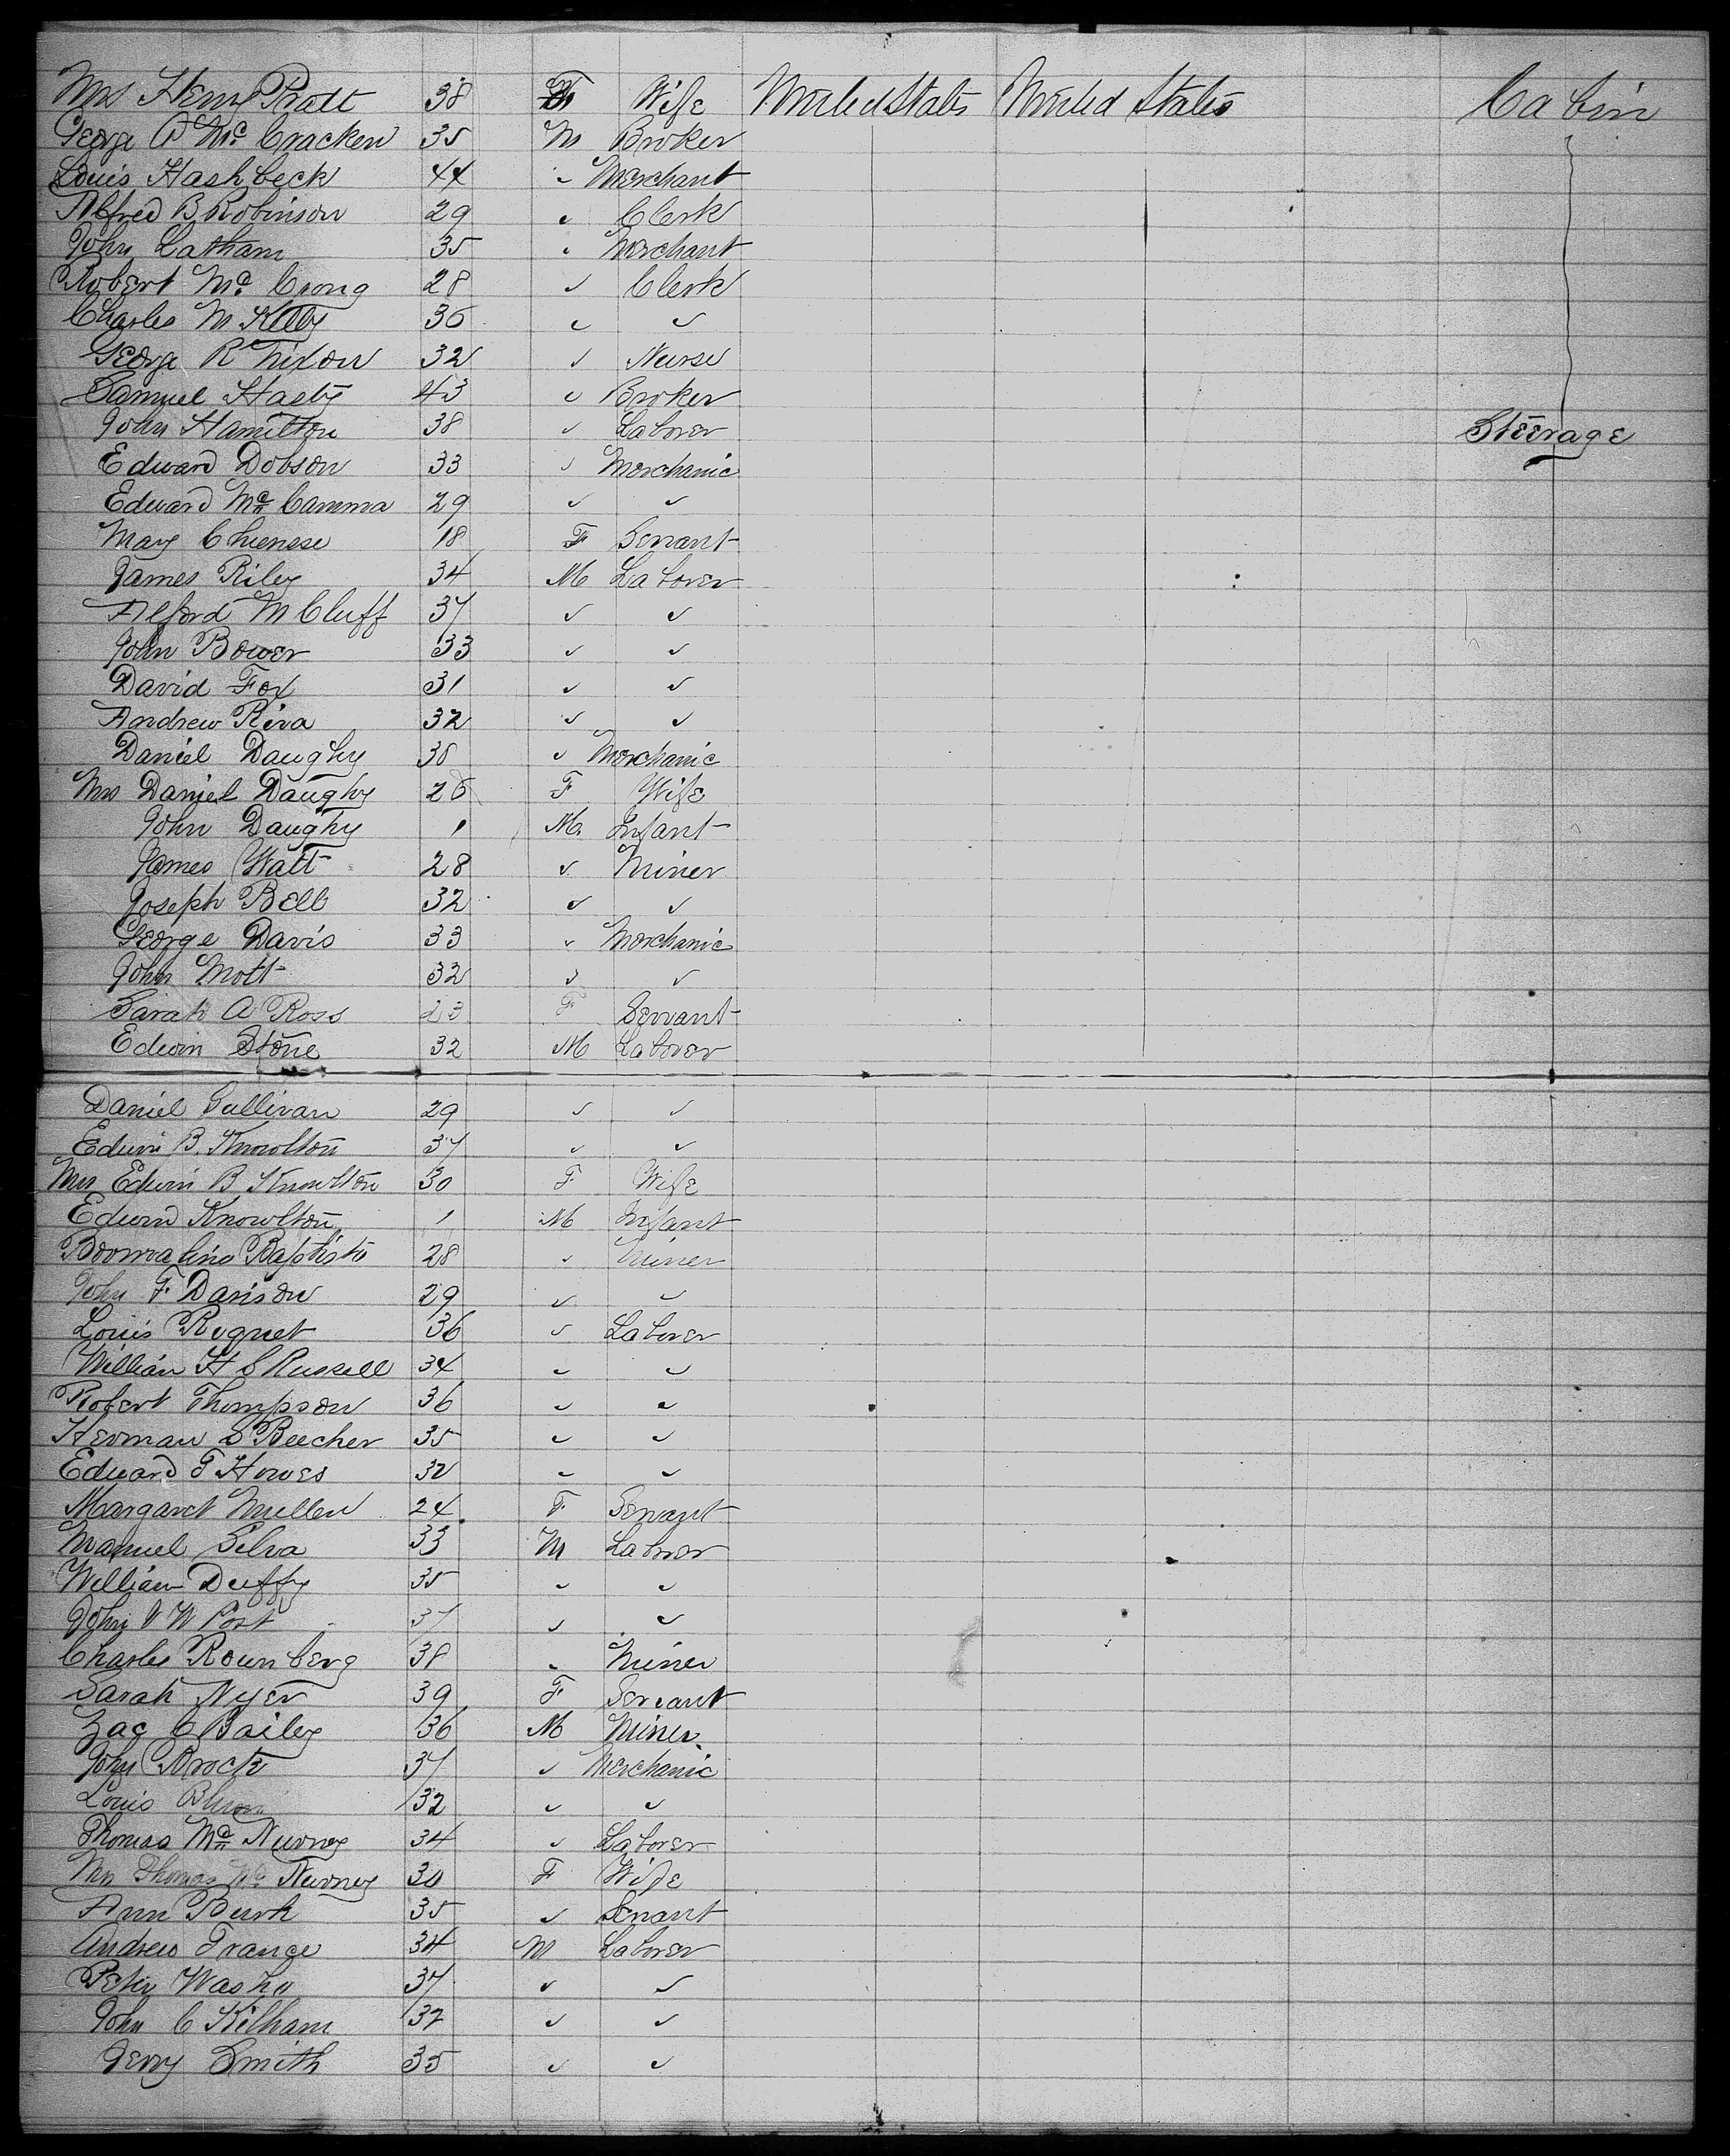 Mrs Henry Pratt 38 F Wife United States United States Cabin
George A Mc Cracken 35 M Broker
Louis Hashbeck 44 " Merchant
Alfred B Robinson 29 " Clerk
John Latham 35 " Merchant
Robert Mc Crong 28 " Clerk
Charles M Kelly 36 " "
George R Nixon 32 " Nurse
Samuel Hasty 43 " Broker
John Hamilton 38 " Laborer Steerage
Edward Dobson 33 " Merchanic
Edward Mc Camma 29 " "
Mary Chienese 18 F Servant
James Riley 34 M Laborer
Alford M Cluff 37 " "
John Bower 33 " "
David Fox 31 " "
Andrew Riva 32 " "
Daniel Daughy 38 " Merchanic
Mrs Daniel Daughy 26 F Wife
John Daughy 1 M Infant
James Watt 28 " Miner
Joseph Bell 32 " "
George Davis 33 " Merchanic
John Mott 32 " "
Sarah A Ross 23 F Servant
Edwin Stone 32 M Laborer
Daniel Sullivan 29 " "
Edwin B. Knowlton 37 " "
Mrs Edwin B Knowlton 30 F Wife
Edwin Knowlton 1 M Infant
Baptista 28 " Miner
John F Davison 29 " "
Louis Roguet 36 " Laborer
William H S Russell 34 " "
Robert Thompson 36 " "
Herman S Beecher 35 " "
Edward F Howes 32 " "
Margaret Mullen 24 F Servant
Manuel Silva 33 M Laborer
William Duffy 35 " "
John V W Post 37 " "
Charles Rounberg 38 " Miner
Sarah Nyer 39 F Servant
Zac C Bailey 36 M Miner
John Brock 37 " Merchanic
Louis 32 " "
Thomas Mc Nurney 34 " Laborer
Mrs Thomas Mc Nurney 30 F Wife
Ann Burk 35 " Servant
Andrew France 34 M Laborer
Peter 37 " "
John C Kilham 32 " "
Jerry Smith 35 " "